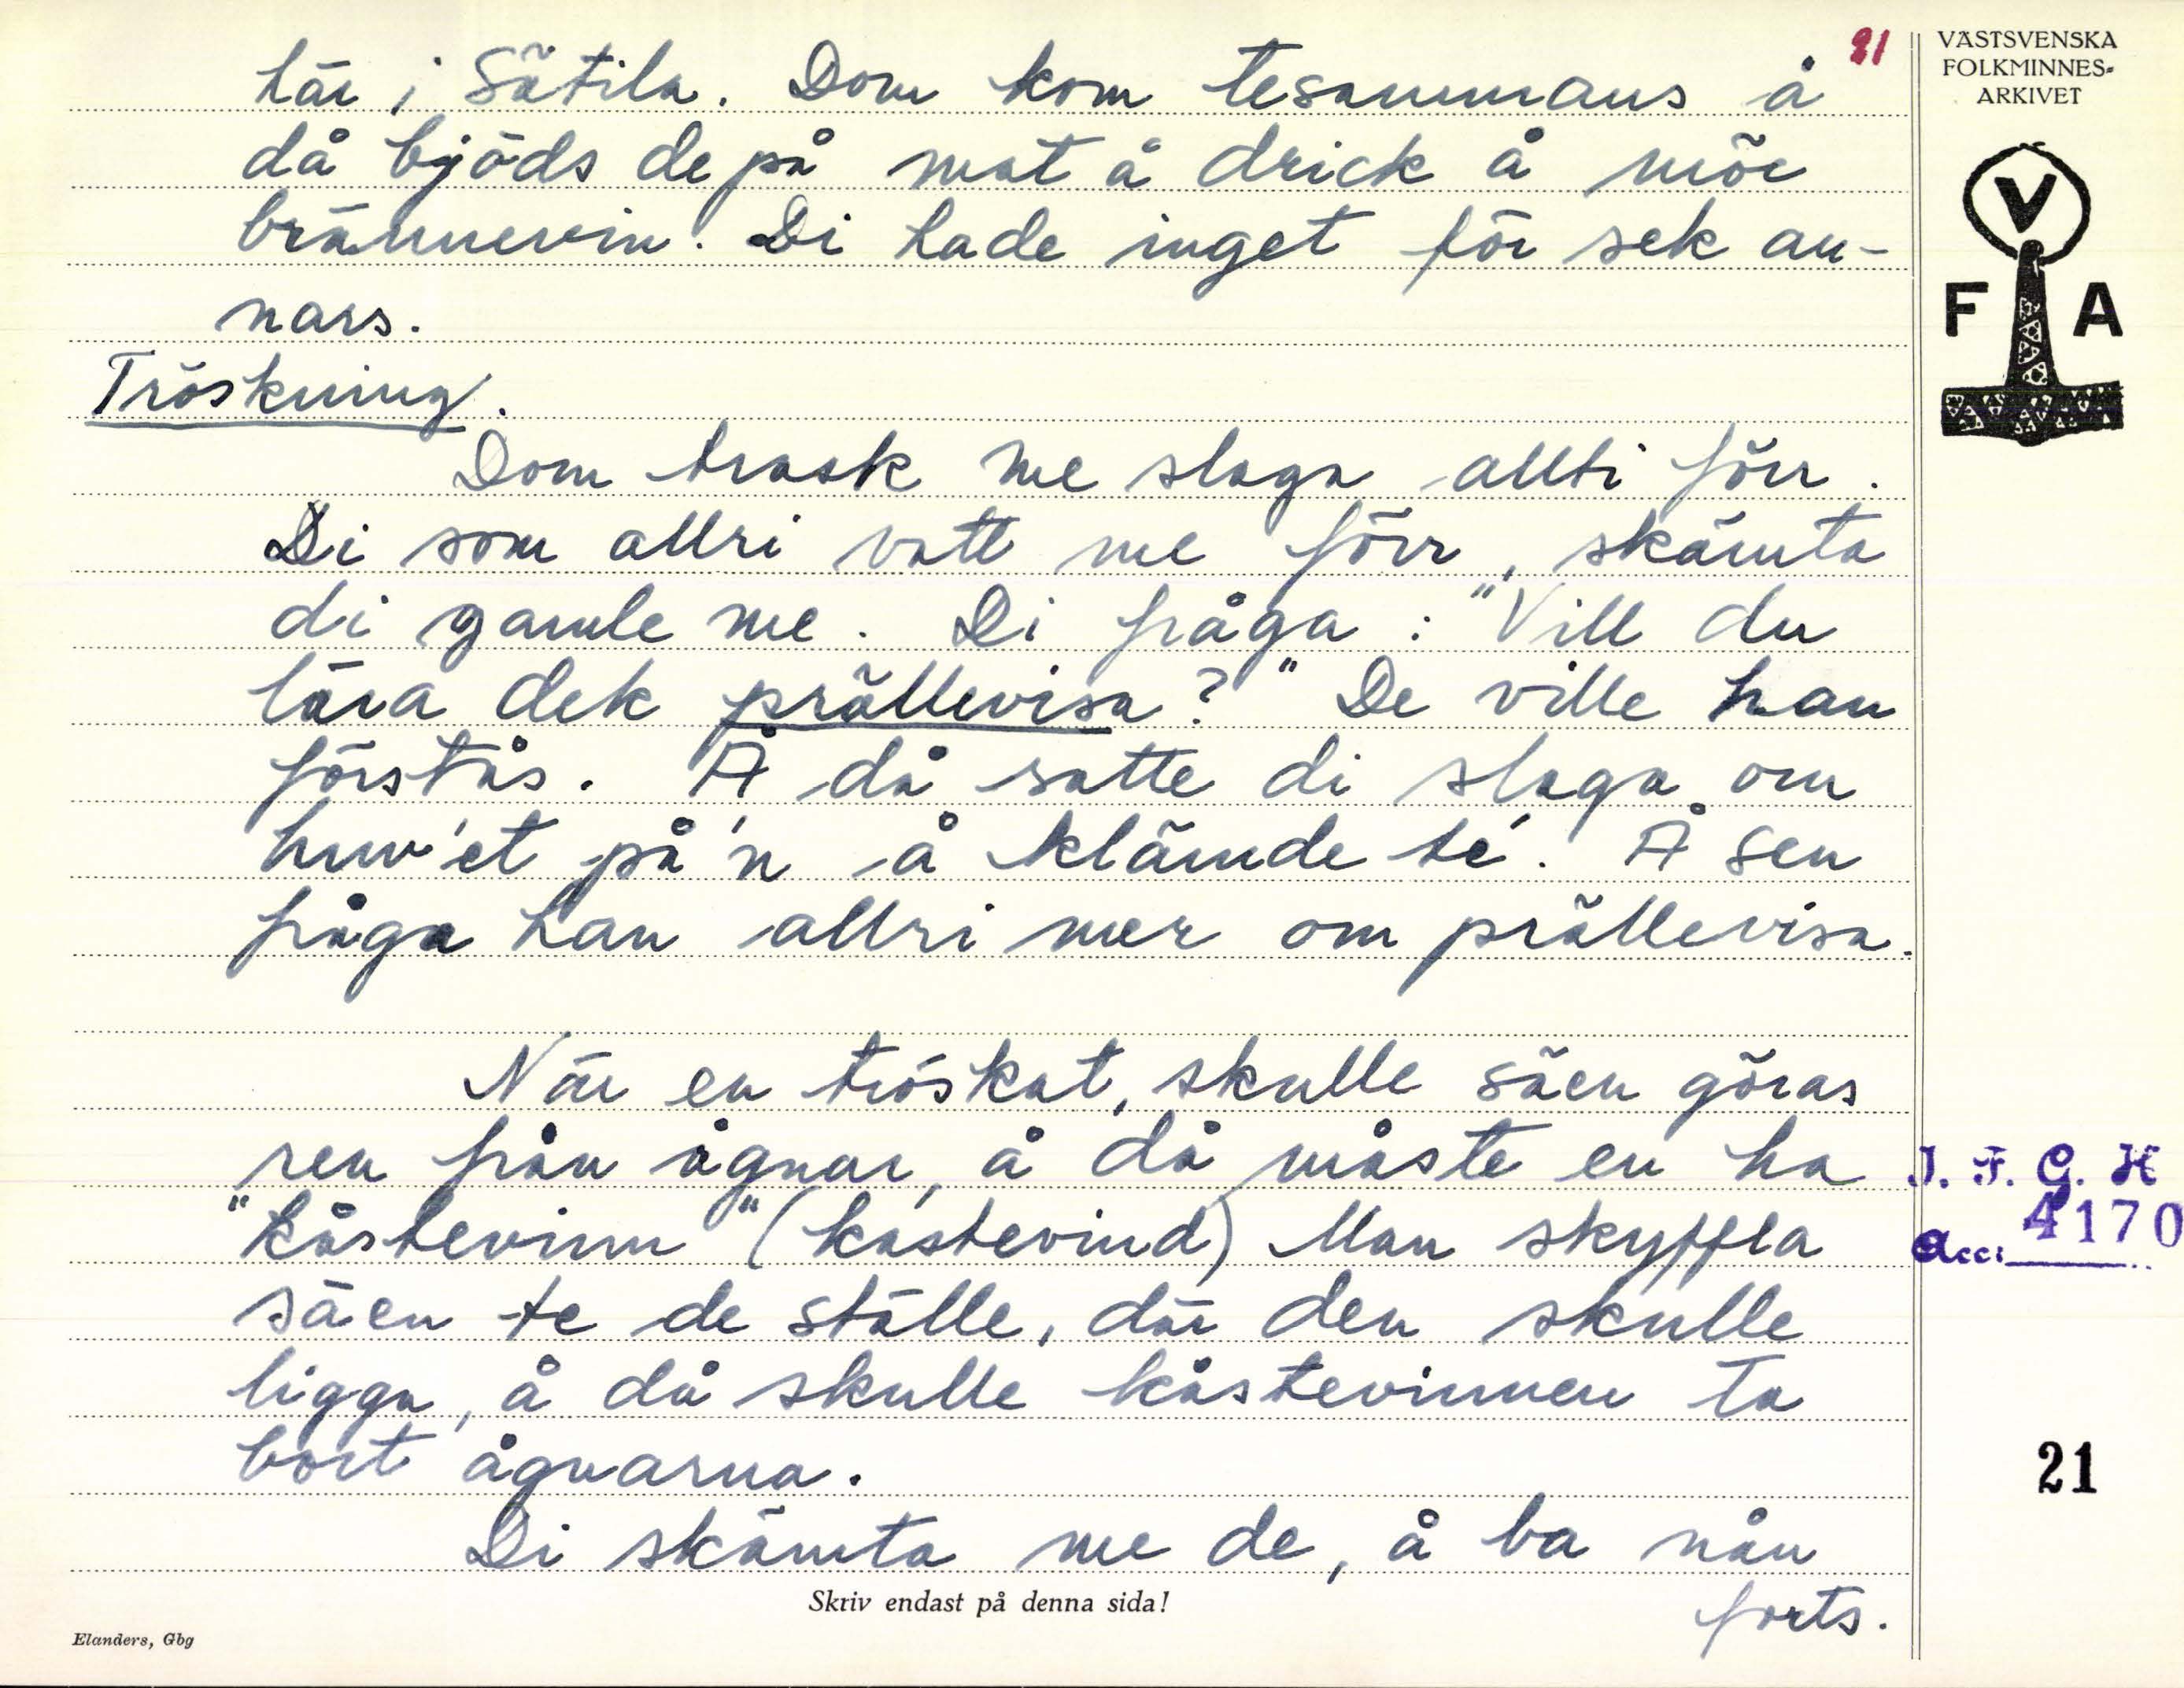 här i Sätila. Dom kom tesammans å
då bjöds de på mat å drick å möe
brännevin. Di hade inget för sek an-
nars.
Tröskning.
Dom trask me slaga allti förr.
Di som allri vatt me förr, skämta
di gamle me. Di fråga: "Vill du
lära dek prällevisa?" De ville han
förstås. Å då satte di slaga om
huv'et på'n å klämde te'. Å sen
fråga han allri mer om prällevisa.
När en tröskat, skulle säen göras
ren från ågnar, å då måste en ha
"kåstevinn" (kastevind) Man skyffla
säen te de ställe, där den skulle
ligga, å då skulle kåstevinnen ta
bort ågnarna.
Di skämta me de, å ba nån
forts.
Skriv endast på denna sida!
Elanders, Gbg
21
VÄSTSVENSKA
FOLKMINNES-
ARKIVET
V
F A
I. F. G. H
Acc: 4170
21